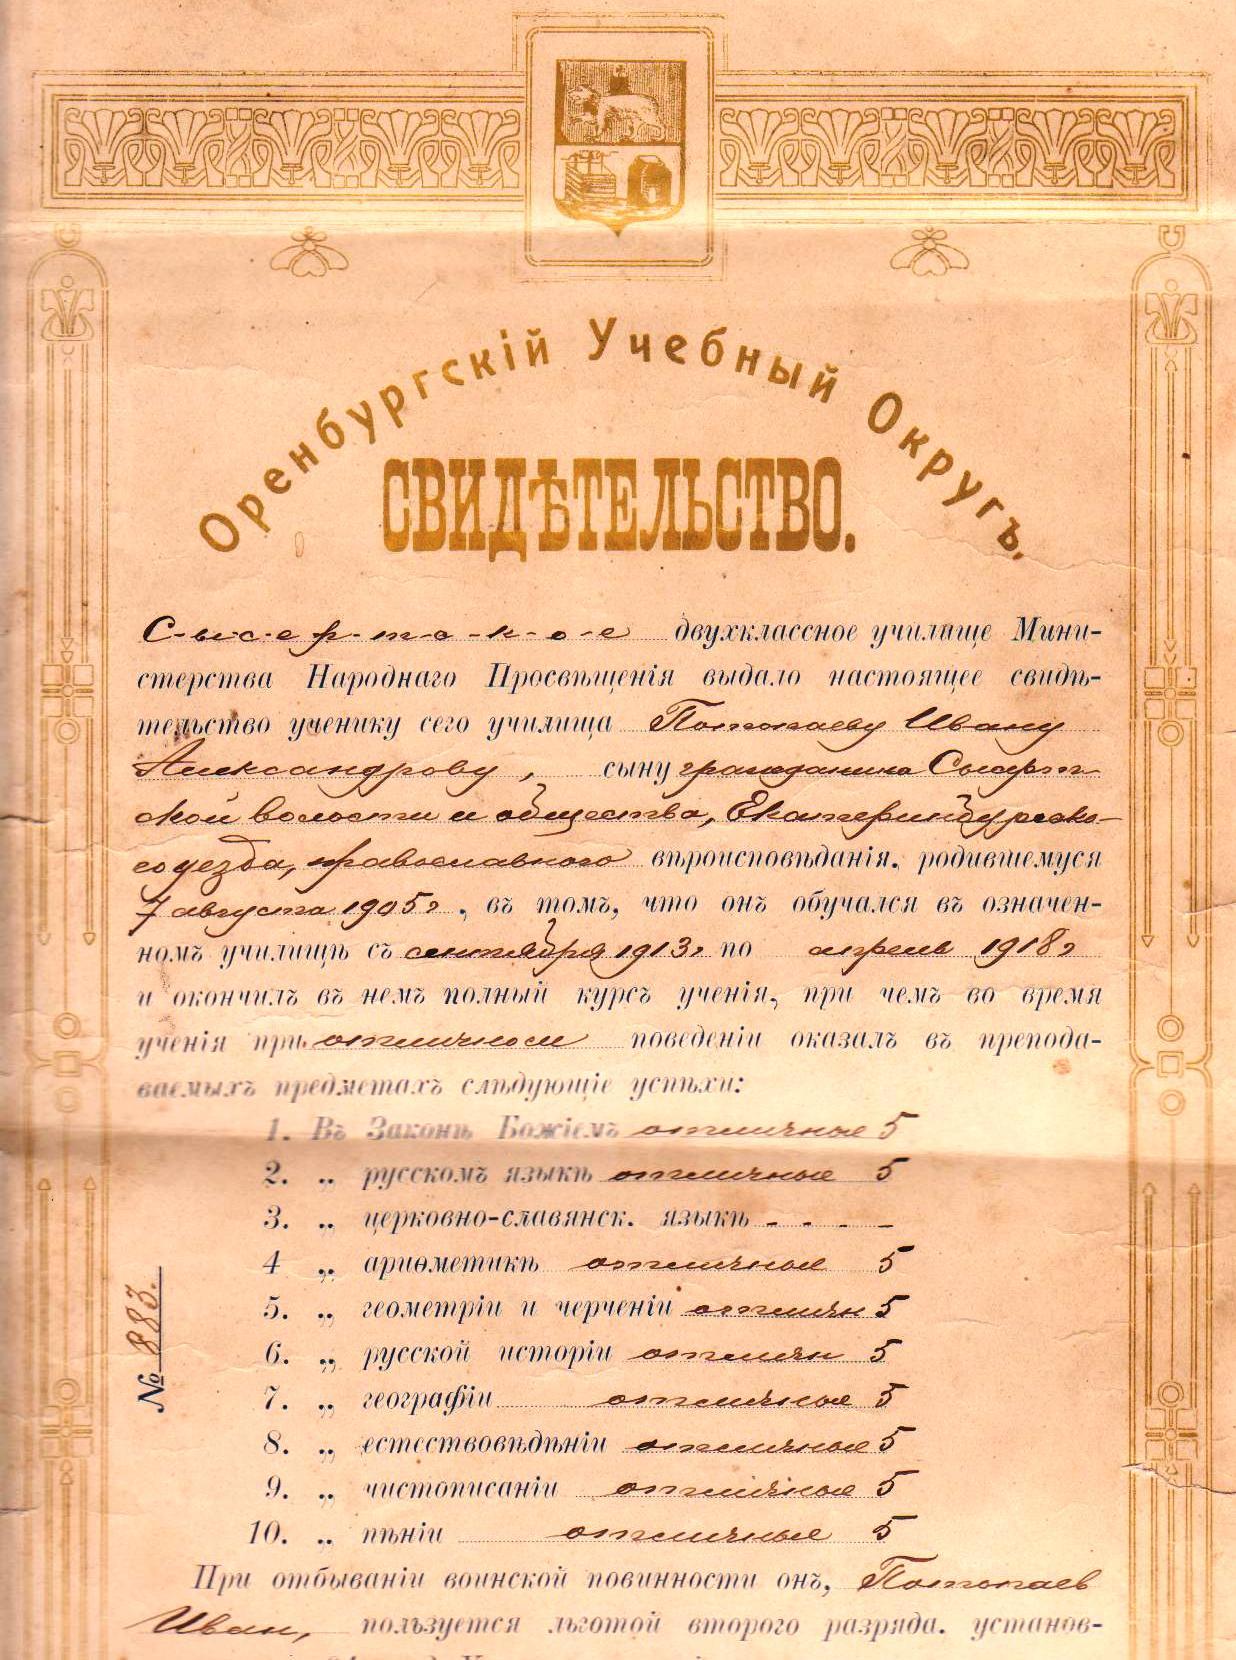 Оренбургскій Учебный Округъ.
СВИДѢТЕЛЬСТВО.
С-ы-с-е-р-т-с-к-о-е двухклассное училище Мини-
стерства Народнаго Просвѣщенія выдало настоящее свидѣ-
тельство ученику сего училища Потопаеву Ивану
Александрову, сыну гражданина Сысерт-
ской волости и общества, Екатеринбургско-
го уезда, православного вѣроисповѣданія, родившемуся
7 августа 1905 г, въ томъ, что онъ обучался въ означен-
номъ училищѣ съ сентября 1913 г по апрель 1918 г
и окончилъ въ немъ полный курсъ ученія, при чемъ во время
ученія при отличном поведеніи оказалъ въ препода-
ваемыхъ предметахъ слѣдующіе успѣхи:
1. Въ Законѣ Божіемъ отличные 5
2. „ русскомъ языкѣ отличные 5
3. „ церковно-славянск. языкѣ - - - -
4 „ ариѳметикѣ отличные 5
5. „ геометріи и черченіи отличн 5
6. „ русской исторіи отличн 5
7. „ географіи отличные 5
8. „ естествовѣдѣніи отличные 5
9. „ чистописаніи отличные 5
10. „ пѣніи отличные 5
№ 883.
При отбываніи воинской повинности онъ, Потопаев
Иван, пользуется льготой второго разряда, установ-